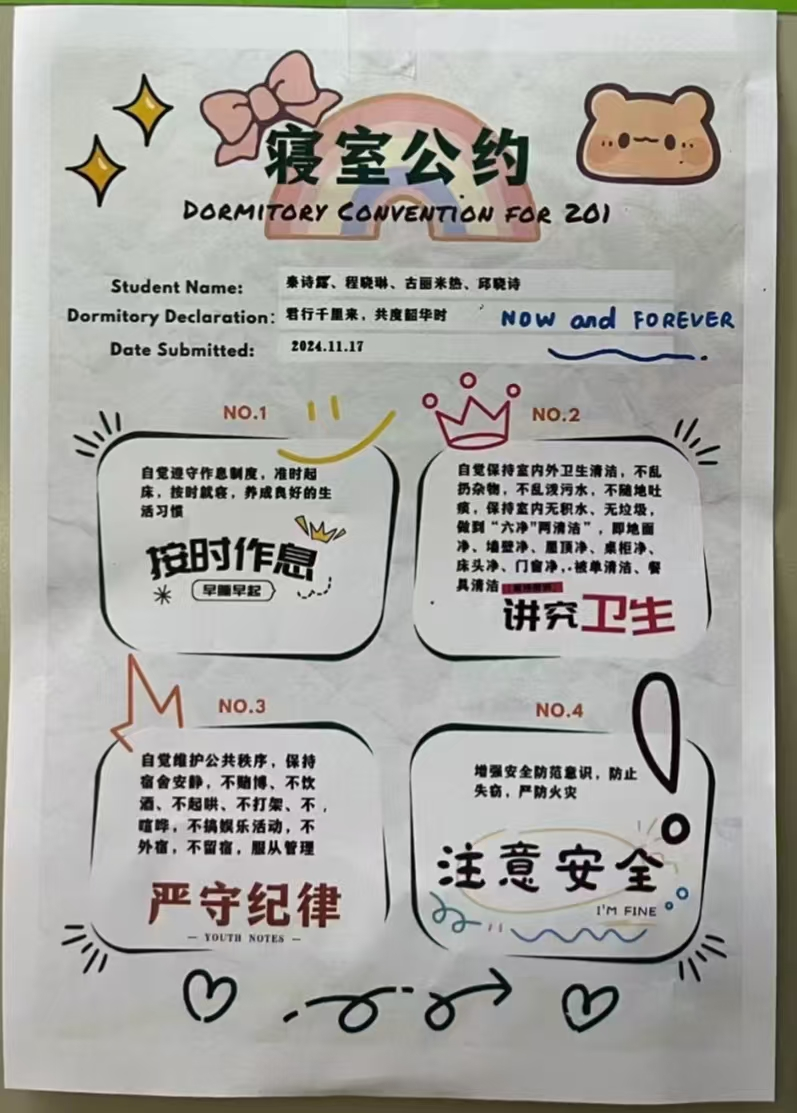 寝室公约
DORMITORY CONVENTION FOR 201
Student Name: 秦诗露、程晓琳、古丽米热、邱晓诗
Dormitory Declaration: 君行千里来，共度韶华时
NOW and FOREVER
Date Submitted: 2024.11.17
NO.1
自觉遵守作息制度，准时起
床，按时就寝，养成良好的生
活习惯
按时作息
早睡早起
NO.2
自觉保持室内外卫生清洁，不乱
扔杂物，不乱泼污水，不随地吐
痰，保持室内无积水、无垃圾，
做到“六净”两清洁”，即地面
净、墙壁净、屋顶净、桌柜净、
床头净、门窗净，被单清洁、餐
具清洁
讲究卫生
NO.3
自觉维护公共秩序，保持
宿舍安静，不赌博、不饮
酒、不起哄、不打架、不
喧哗，不搞娱乐活动，不
外宿，不留宿，服从管理
严守纪律
— YOUTH NOTES —
NO.4
增强安全防范意识，防止
失窃，严防火灾
注意安全
I'M FINE